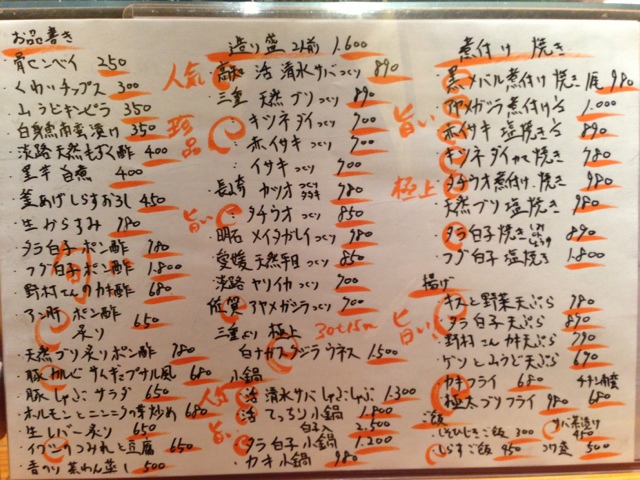 お品書き
骨センベイ 250
くわいチップス 300
山うどキンピラ 350
白身魚南蛮漬け 350
淡路 天然もずく酢 400
里芋 白煮 400
釜あげしらすおろし 450
生からすみ 780
タラ白子ポン酢 780
フグ白子ポン酢 1.800
野村さんのカキ酢 680
アン肝 ポン酢 650
炙り
天然ブリ炙りポン酢 780
豚カルビ サイキョウヅケ風 680
豚しゃぶサラダ 650
ホルモンとニンニクの芽炒め 680
生レバー炙り 650
イワシのつみれと豆腐 650
香のり 茶わん蒸し 500
人気
珍品
旨い
旬
人気
旨い
造り盛 2人前 1.600
高知 活 清水サバつくり 890
三重 天然ブリつくり 890
〃 キツネダイつくり 700
〃 赤イサキつくり 700
イサキつくり 700
長崎 カツオ つくり タタキ 980
〃 タチウオつくり 850
明石 メイタガレイつくり 980
愛媛 天然平目つくり 850
淡路 ヤリイカつくり 700
佐賀 アヤメガシラつくり 700
三重より 極上 30t15m
白ナガスクジラウネス 1.500
小鍋
活 清水サバしゃぶしゃぶ 1.300
活 てっちり小鍋 1.800
白子入 2.500
タラ白子小鍋 1.200
カキ小鍋 980
旨い
極上
旨い
煮付け 焼き
黒メバル煮付け 焼き 1尾 980
アヤメガシラ煮付け 1/2 1.000
赤イサキ 塩焼き 1/2 890
キツネダイ カマ焼き 780
タチウオ煮付け 焼き 980
天然ブリ塩焼き 780
タラ白子焼き 890
フグ白子塩焼き 1.800
揚げ
キスと野菜天ぷら 780
タラ白子天ぷら 890
野村さんカキ天ぷら 780
ゲソと山うど天ぷら 690
カキフライ 680
チキン南蛮 680
極太ブリフライ 980 680
ご飯
じゃこひじきご飯 300
サバ茶漬け 450
しらすご飯 450
コワ盛 500